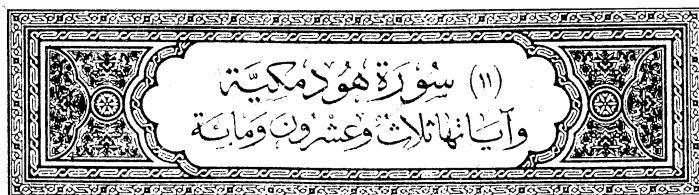 (١١) سُورَة هُود مَكيَّة
وَآيَاتهَا ثَلَاثٌ وَعِشْرُون وَمائَة